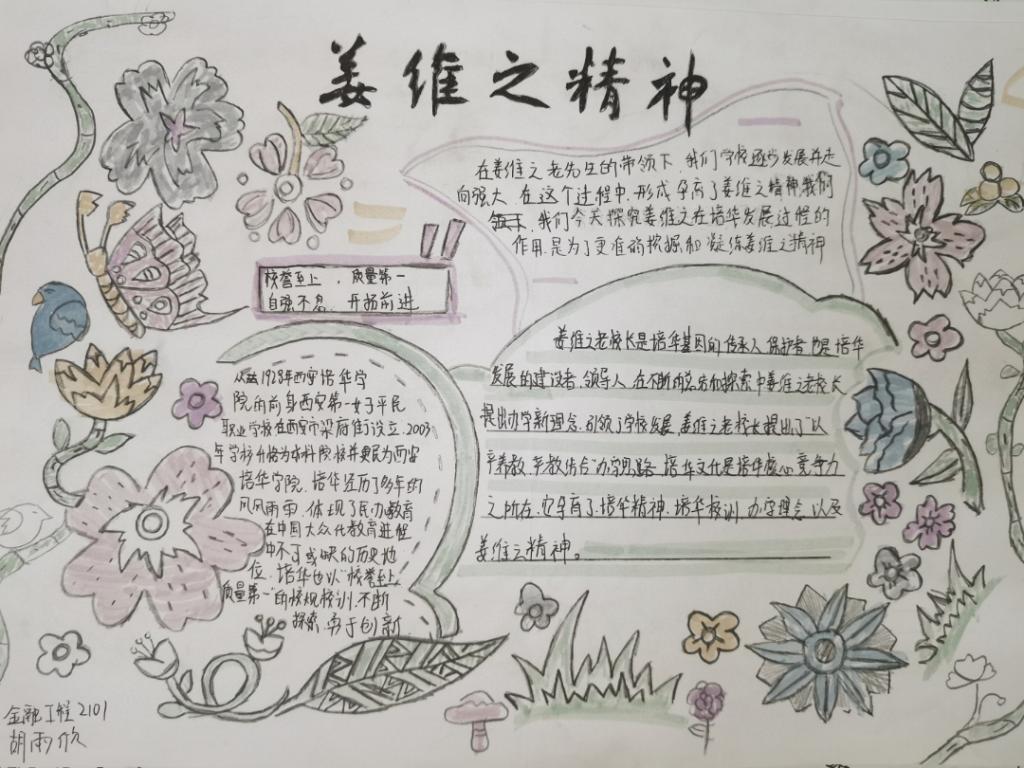 姜维之精神
在姜维之老先生的带领下,我们学校逐步发展并走
向强大,在这个过程中,形成孕育了姜维之精神我们
我们今天探究姜维之在培华发展过程的
作用,是为了更准的挖掘和凝练姜维之精神
校誉至上,质量第一
自强不息,开拓前进
姜维之老校长是培华基因的传承人,保护者,也是培华
发展的建设者,领导人,在不断的总结和探索中姜维之老校长
提出办学新理念,引领了学校发展,姜维之老校长提出了"以
产养教,产教结合"办学思路,培华文化是培华核心竞争力
之所在,它孕育了培华精神、培华校训、办学理念,以及
姜维之精神。
从1928年西安培华学
院的前身西安第一女子平民
职业学校在西安市梁府街设立,2003
年学校升格为本科院校并更民为西安
培华学院,培华经历了多年的
风风雨雨,体现了民办教育
在中国大众化教育进程
中不可或缺的历史地
位,培华也以"校誉至上
质量第一"的校规校训,不断
探索,勇于创新
金融工程2101
胡雨欣